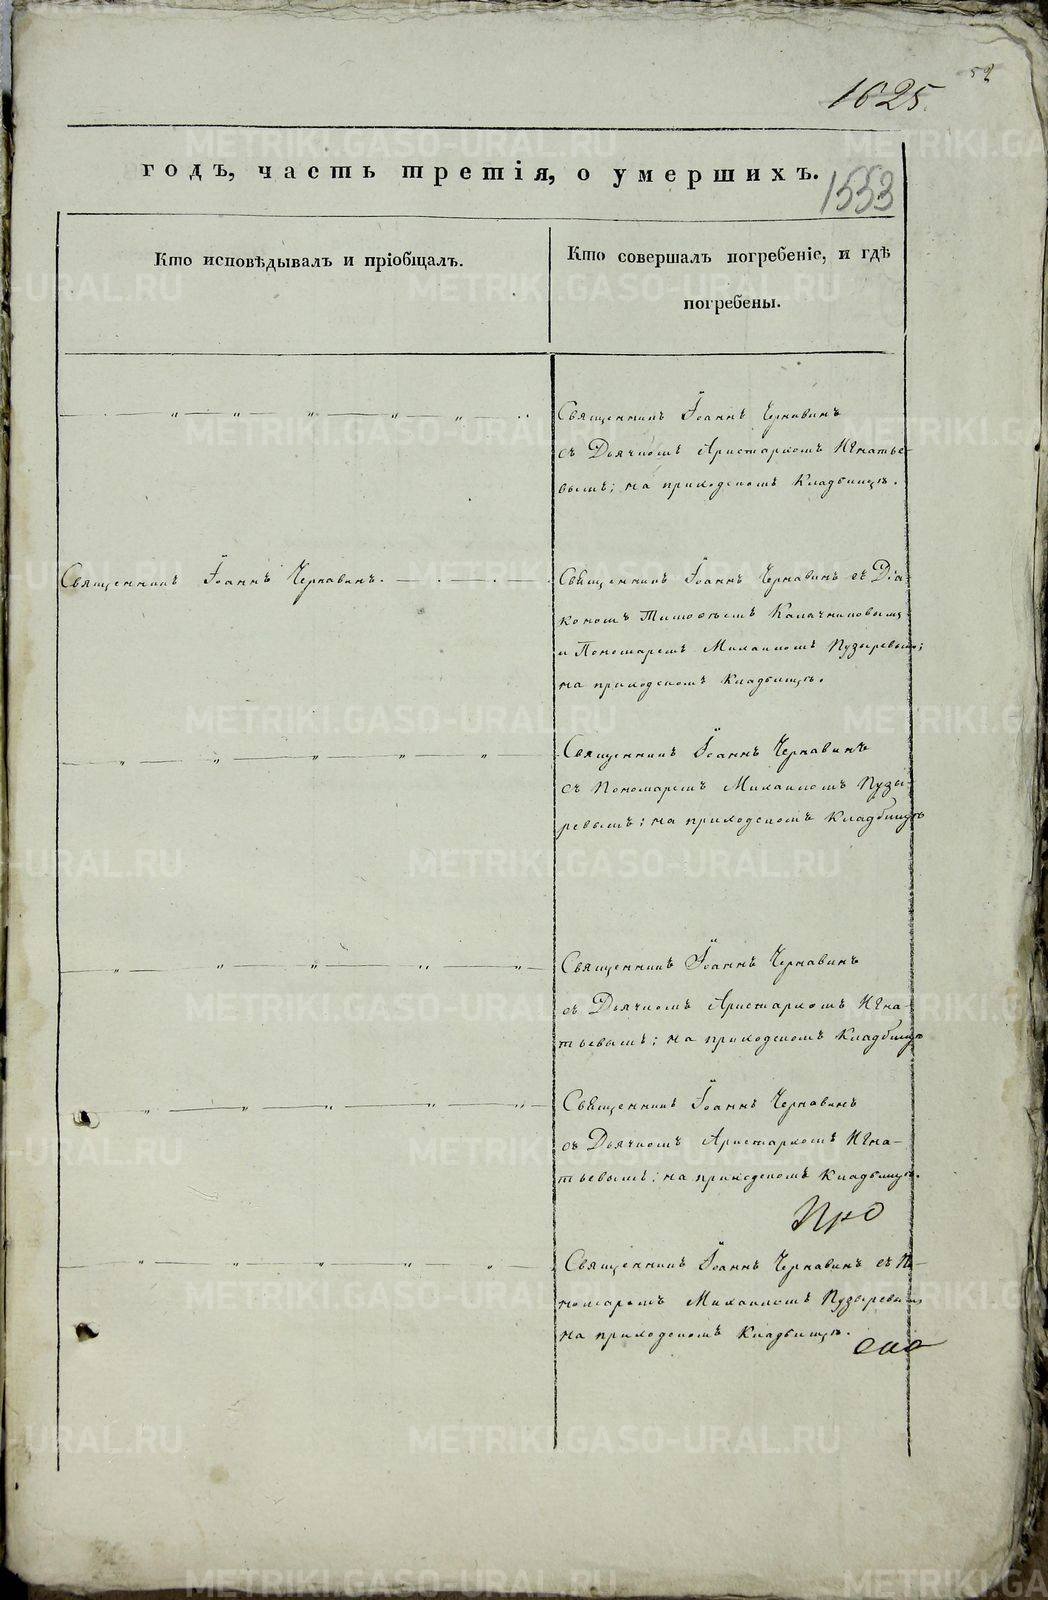 52
1625
годъ, часть третія, о умершихъ.
1553
Кто исповѣдывалъ и пріобщалъ.
Кто совершалъ погребеніе, и гдѣ
погребены.
Священникъ Іоаннъ Чернавинъ
съ Дьячкомъ Аристархомъ Игнатье-
вымъ; на приходскомъ Кладбищѣ.
Священникъ Іоаннъ Чернавинъ.
Священникъ Іоаннъ Чернавинъ съ Діа-
кономъ Тимофеемъ Калачниковымъ
и Пономаремъ Михаиломъ Пузыревымъ;
на приходскомъ Кладбищѣ.
Священникъ Іоаннъ Чернавинъ
съ Пономаремъ Михаиломъ Пузы-
ревымъ; на приходскомъ Кладбищѣ
Священникъ Іоаннъ Чернавинъ
съ Дьячкомъ Аристархомъ Игна-
тьевымъ; на приходскомъ Кладбищѣ
Священникъ Іоаннъ Чернавинъ
съ Дьячкомъ Аристархомъ Игна-
тьевымъ; на приходскомъ Кладбищѣ.
Священникъ Іоаннъ Чернавинъ съ По-
номаремъ Михаиломъ Пузыревымъ
на приходскомъ Кладбищѣ.
METRIKI.GASO-URAL.RU